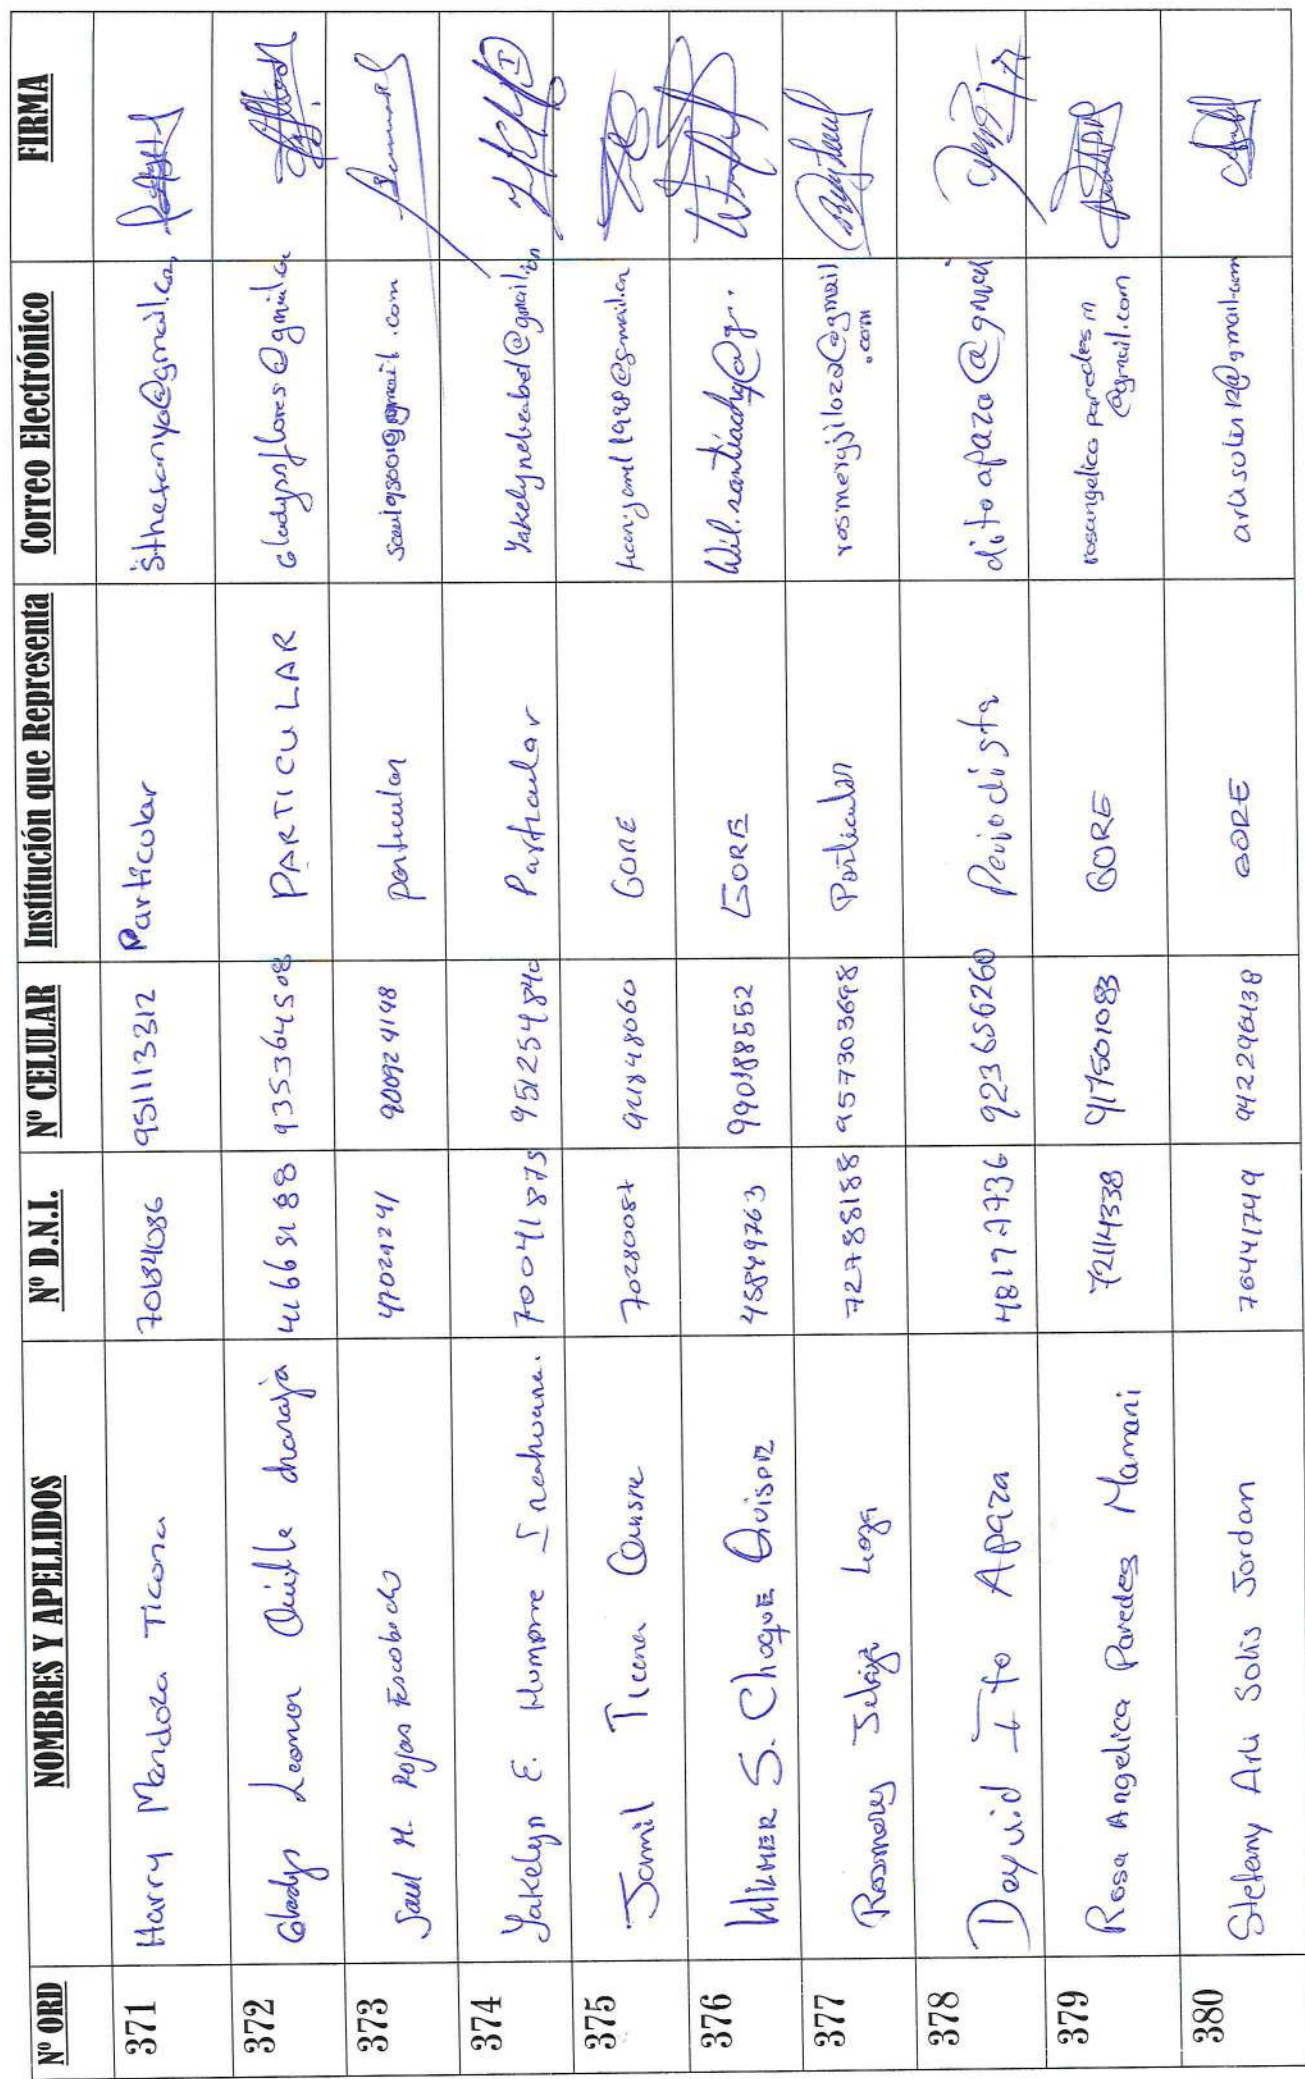 Nº ORD NOMBRES Y APELLIDOS Nº D.N.I. Nº CELULAR Institución que Representa Correo Electrónico FIRMA
371 Harry Mendoza Ticona 70184086 951113312 Particular @gmail.com
372 Gladys Leonor Quille charaja 935364508 PARTICULAR @gmail.co
373 Saul H. Rojas Escobedo 900924198 particular
374 Yakelyn E. Humpire 70041875 951254840 Particular
375 Jamil Ticona Quispe 70280087 GORE
376 WILMER S. Choque QUISPE 45849763 990188552 GORE Wil.santiachq@g..
377 Rosmery Jelija Loza 72788188 957303698 Particular rosmeryjiloza@gmail
.com
378 Deyvid Ito Apaza 923656260 Periodista ditoapaza@gmail
379 Rosa Angelica Paredes Mamani 72114338 917501083 GORE rosangelica paredes m
@gmail.com
380 Stefany Arli Solis Jordan 76441749 942296438 GORE arlisolis12@gmail.com